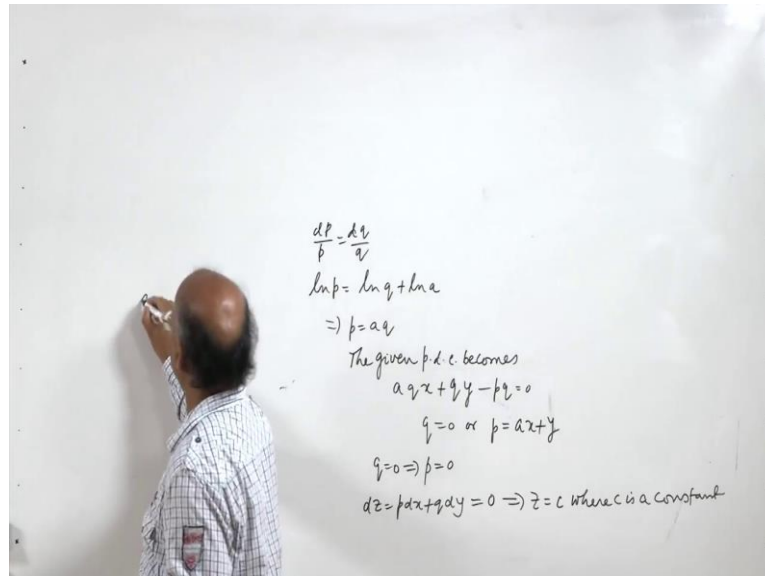 dp/p = dq/q
ln p = ln q + ln a
⇒ p = aq
The given p.d.e. becomes
aqx + qy − pq = 0
q = 0 or p = ax + y
q = 0 ⇒ p = 0
dz = pdx + qdy = 0 ⇒ z = c where c is a constant